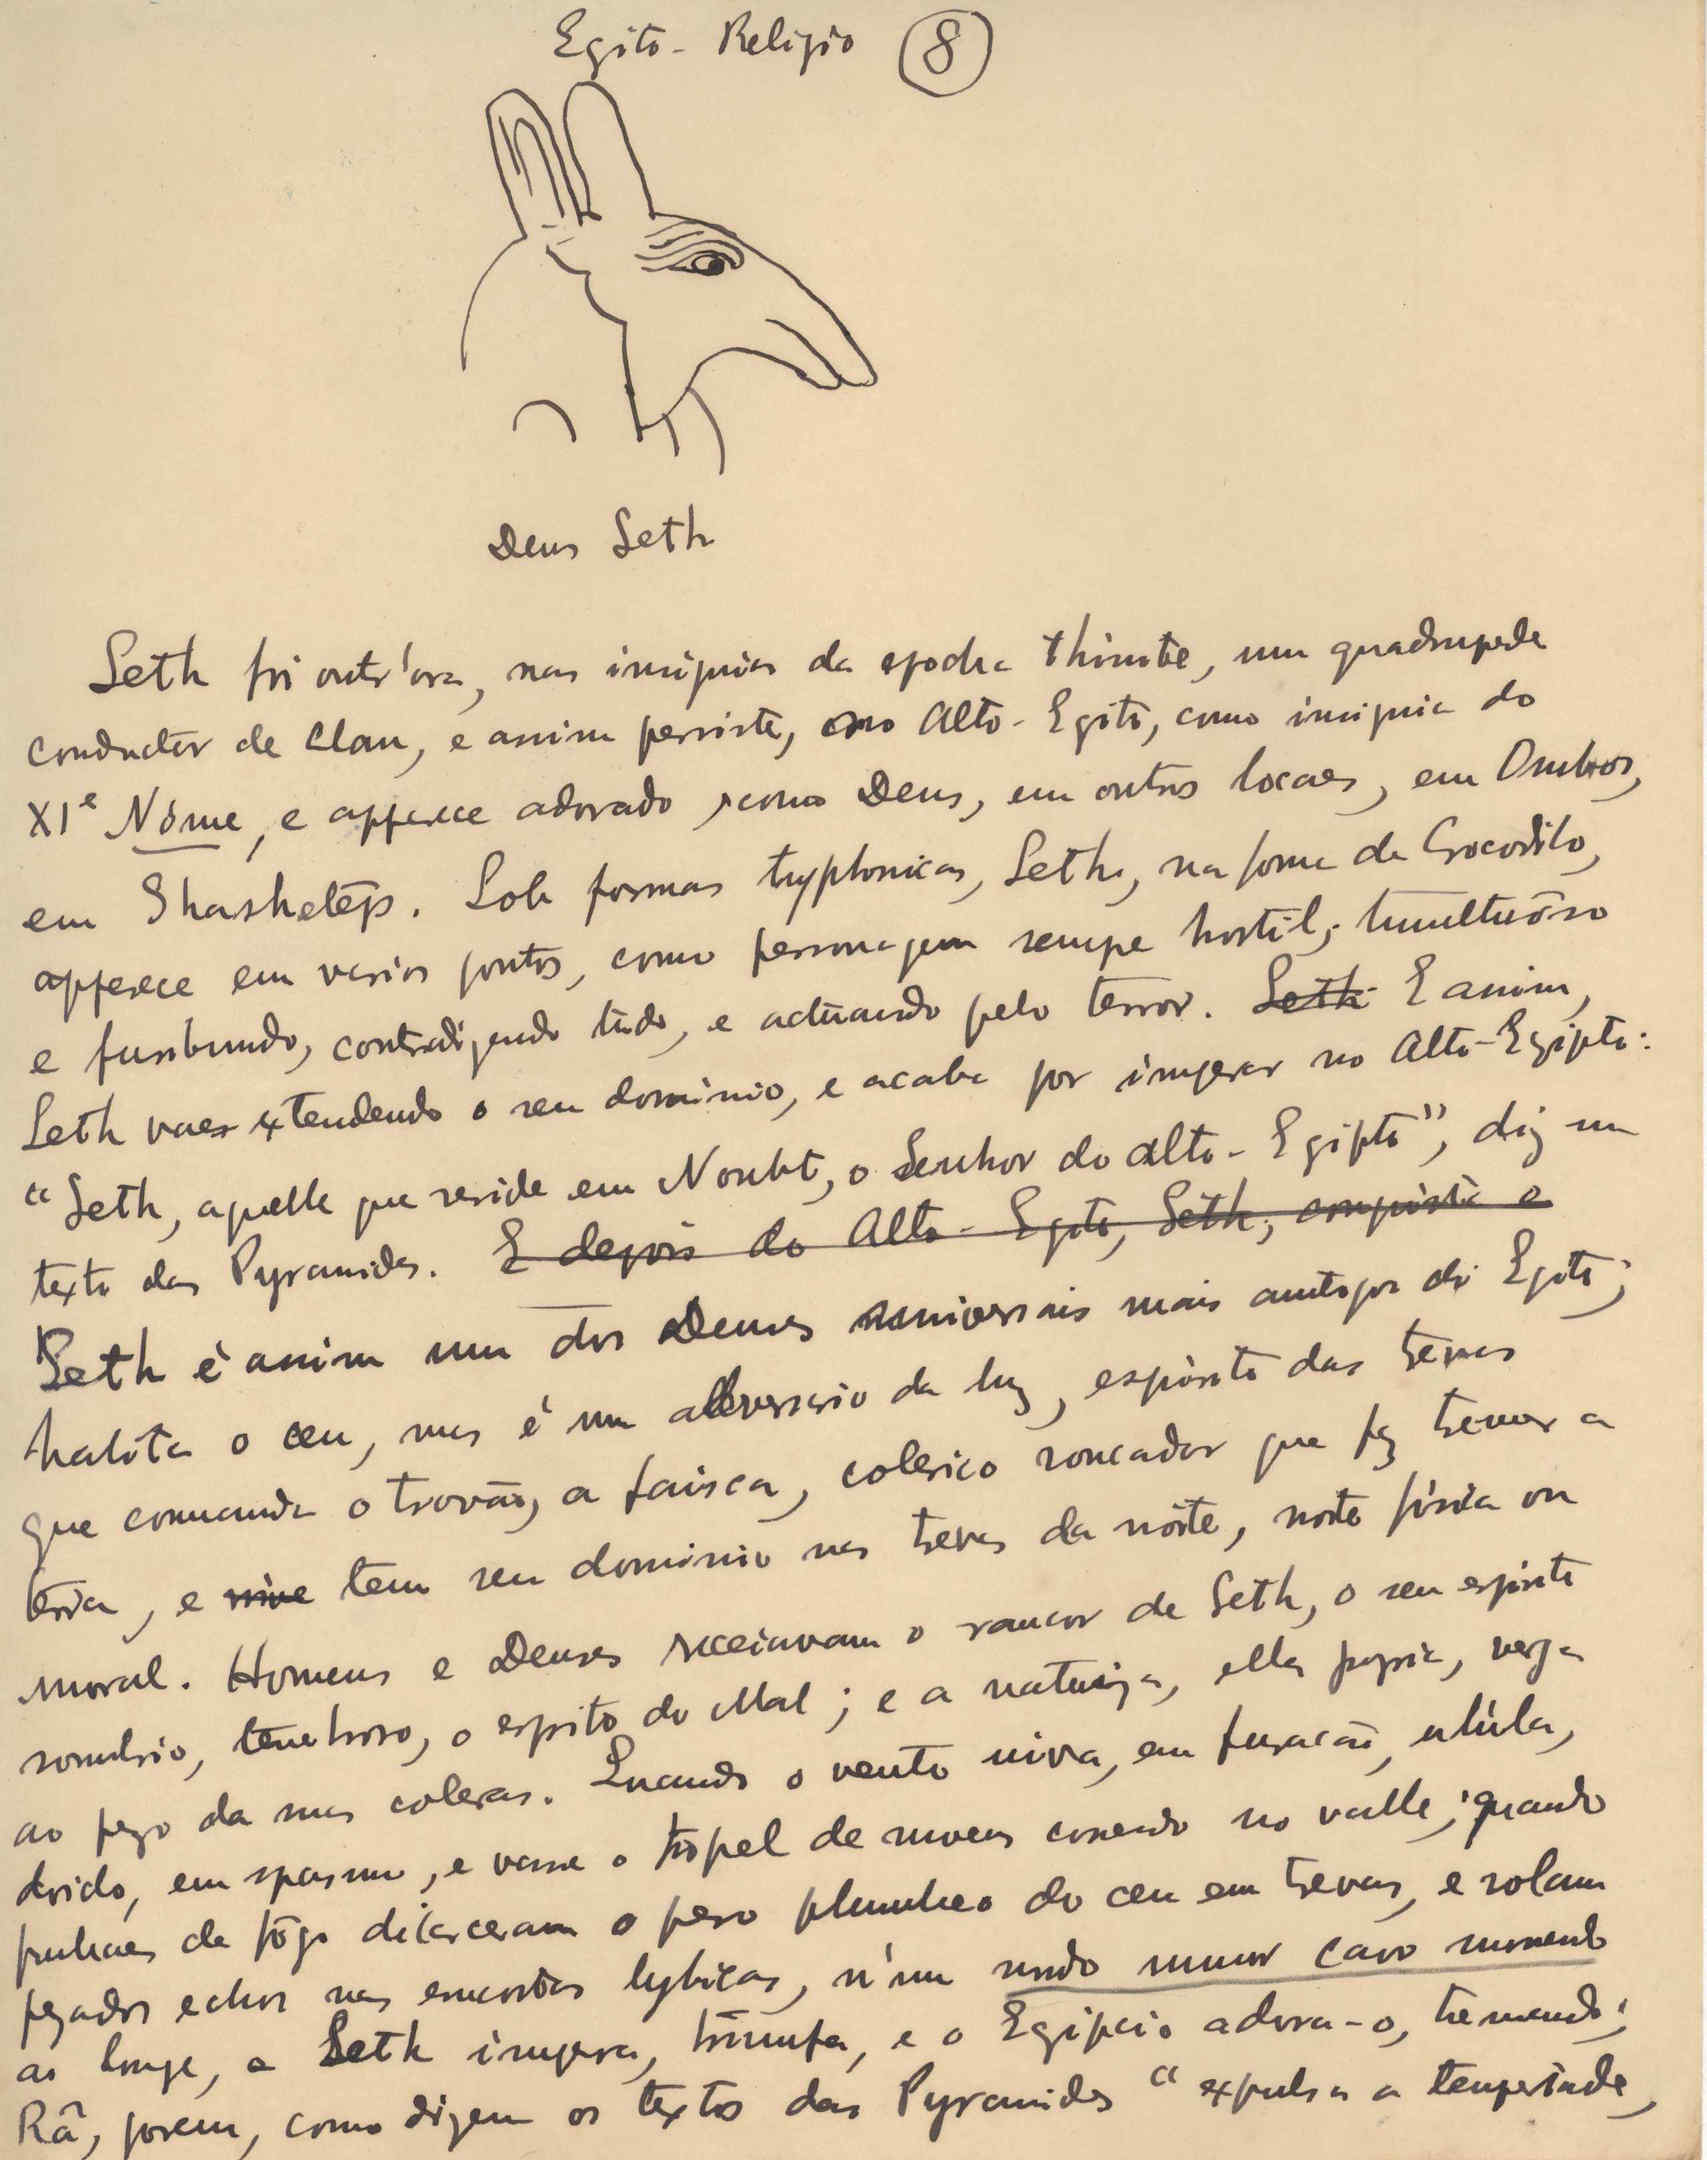 Egito - Religião 8
Deus Seth
Seth foi outr'ora, nas insignias da epocha thinite, um quadrupede
conductor de Clan, e assim persiste, no Alto-Egito, como insignia do
XIe Nóme, e apparece adorado, como Deus, em outros locaes, em Ombos,
em Shashetép. Sob formas typhonicas, Seth, na forma de Crocodilo,
apparece em varios pontos, como personagem sempre hostil, tumultuôso
e furibundo, contradizendo tudo, e actuando pelo terror. Seth E assim,
Seth vae extendendo o seu dominio, e acaba por imperar no Alto-Egipto:
"Seth, aquelle que reside em Noubt, o Senhor do alto-Egipto", diz um
texto das Pyramides. E depois do Alto-Egito, Seth, conquista o
Seth é assim um dos Deuses universais mais antigos do Egito;
habita o ceu, mas é um adversario da luz, espirito das trevas
que commanda o trovão, a faisca, colerico roncador que faz tremer a
terra, e vive tem seu dominio nas trevas da nôite, noite fisica ou
moral. Homens e Deuses receiavam o rancor de Seth, o seu espirito
sombrio, tenebroso, o espirito do Mal; e a natureza, ella propria, verga
ao pezo da suas coleras. Quando o vento uiva, em furacão, ulúla,
doido, em espasmo, e varre o tropel de nuvens correndo no valle; quando
punhaes de fôgo dilaceram o pezo plumbeo do ceu em trevas, e rolam
pezados echos nas encostas lybicas, n'um surdo rumor cavo morrendo
ao longe, a Seth impera, triumfa, e o Egipcio adora-o, tremendo;
Râ, porem, como dizem os textos das Pyramides "expulsa a tempestade,